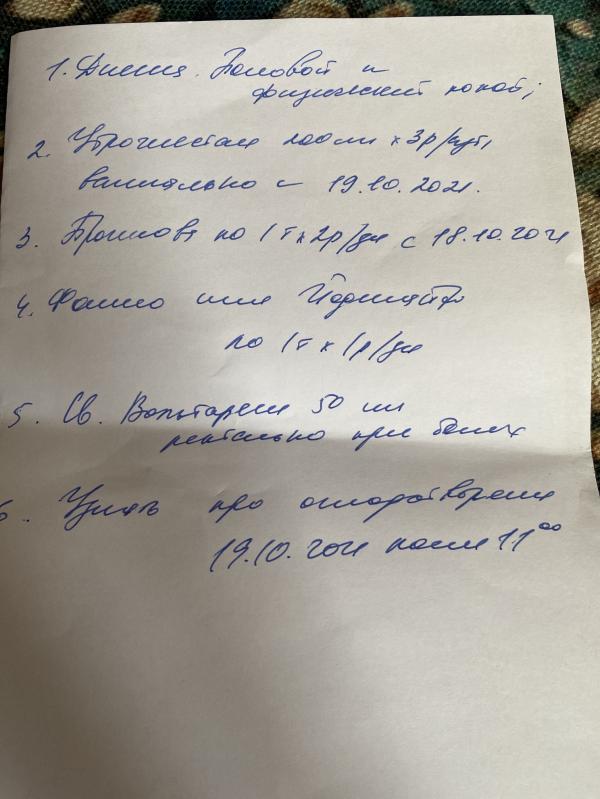 1. Диета. Половой и
физический покой;
2. Утрожестан 200 мг х 3р/сут
вагинально с 19.10.2021.
3. по 1т х 2р/дн с 18.10.2021
4. Фолио или Йодомарин
по 1т х 1р/дн
5. Св. Вольтарен 50 мг
ректально при болях
6. Узнать про оплодотворение
19.10.2021 после 11⁰⁰